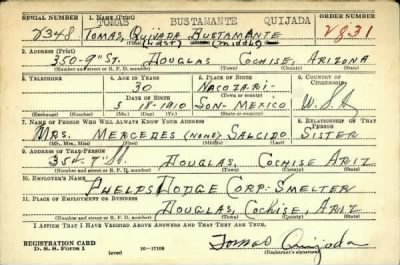 TOMAS BUSTAMANTE QUIJADA
SERIAL NUMBER 1. NAME (Print) ORDER NUMBER
2348 TOMAS, QUIJADA BUSTAMANTE 2831
(First) (Middle) (Last)
2. ADDRESS (Print)
350-9th ST. DOUGLAS COCHISE, ARIZONA
(Number and street or R. F. D. number) (Town) (County) (State)
3. TELEPHONE 4. AGE IN YEARS 5. PLACE OF BIRTH 6. COUNTRY OF CITIZENSHIP
30 NACOZARI-
DATE OF BIRTH (Town or county)
5 18-1910 SON- MEXICO U.S.A
(Exchange) (Number) (Mo.) (Day) (Yr.) (State or country)
7. NAME OF PERSON WHO WILL ALWAYS KNOW YOUR ADDRESS 8. RELATIONSHIP OF THAT PERSON
MRS. MERCEDES (NONE) SALCIDO SISTER
(Mr., Mrs., Miss) (First) (Middle) (Last)
9. ADDRESS OF THAT PERSON
DOUGLAS, COCHISE ARIZ
(Number and street or R. F. D. number) (Town) (County) (State)
10. EMPLOYER'S NAME
PHELPS DODGE CORP. SMELTER
11. PLACE OF EMPLOYMENT OR BUSINESS
DOUGLAS, COCHISE, ARIZ
(Number and street or R. F. D. number) (Town) (County) (State)
I AFFIRM THAT I HAVE VERIFIED ABOVE ANSWERS AND THAT THEY ARE TRUE.
REGISTRATION CARD
D. S. S. Form 1 (over) 16-17105 Tomas Quijada
(Registrant's signature)